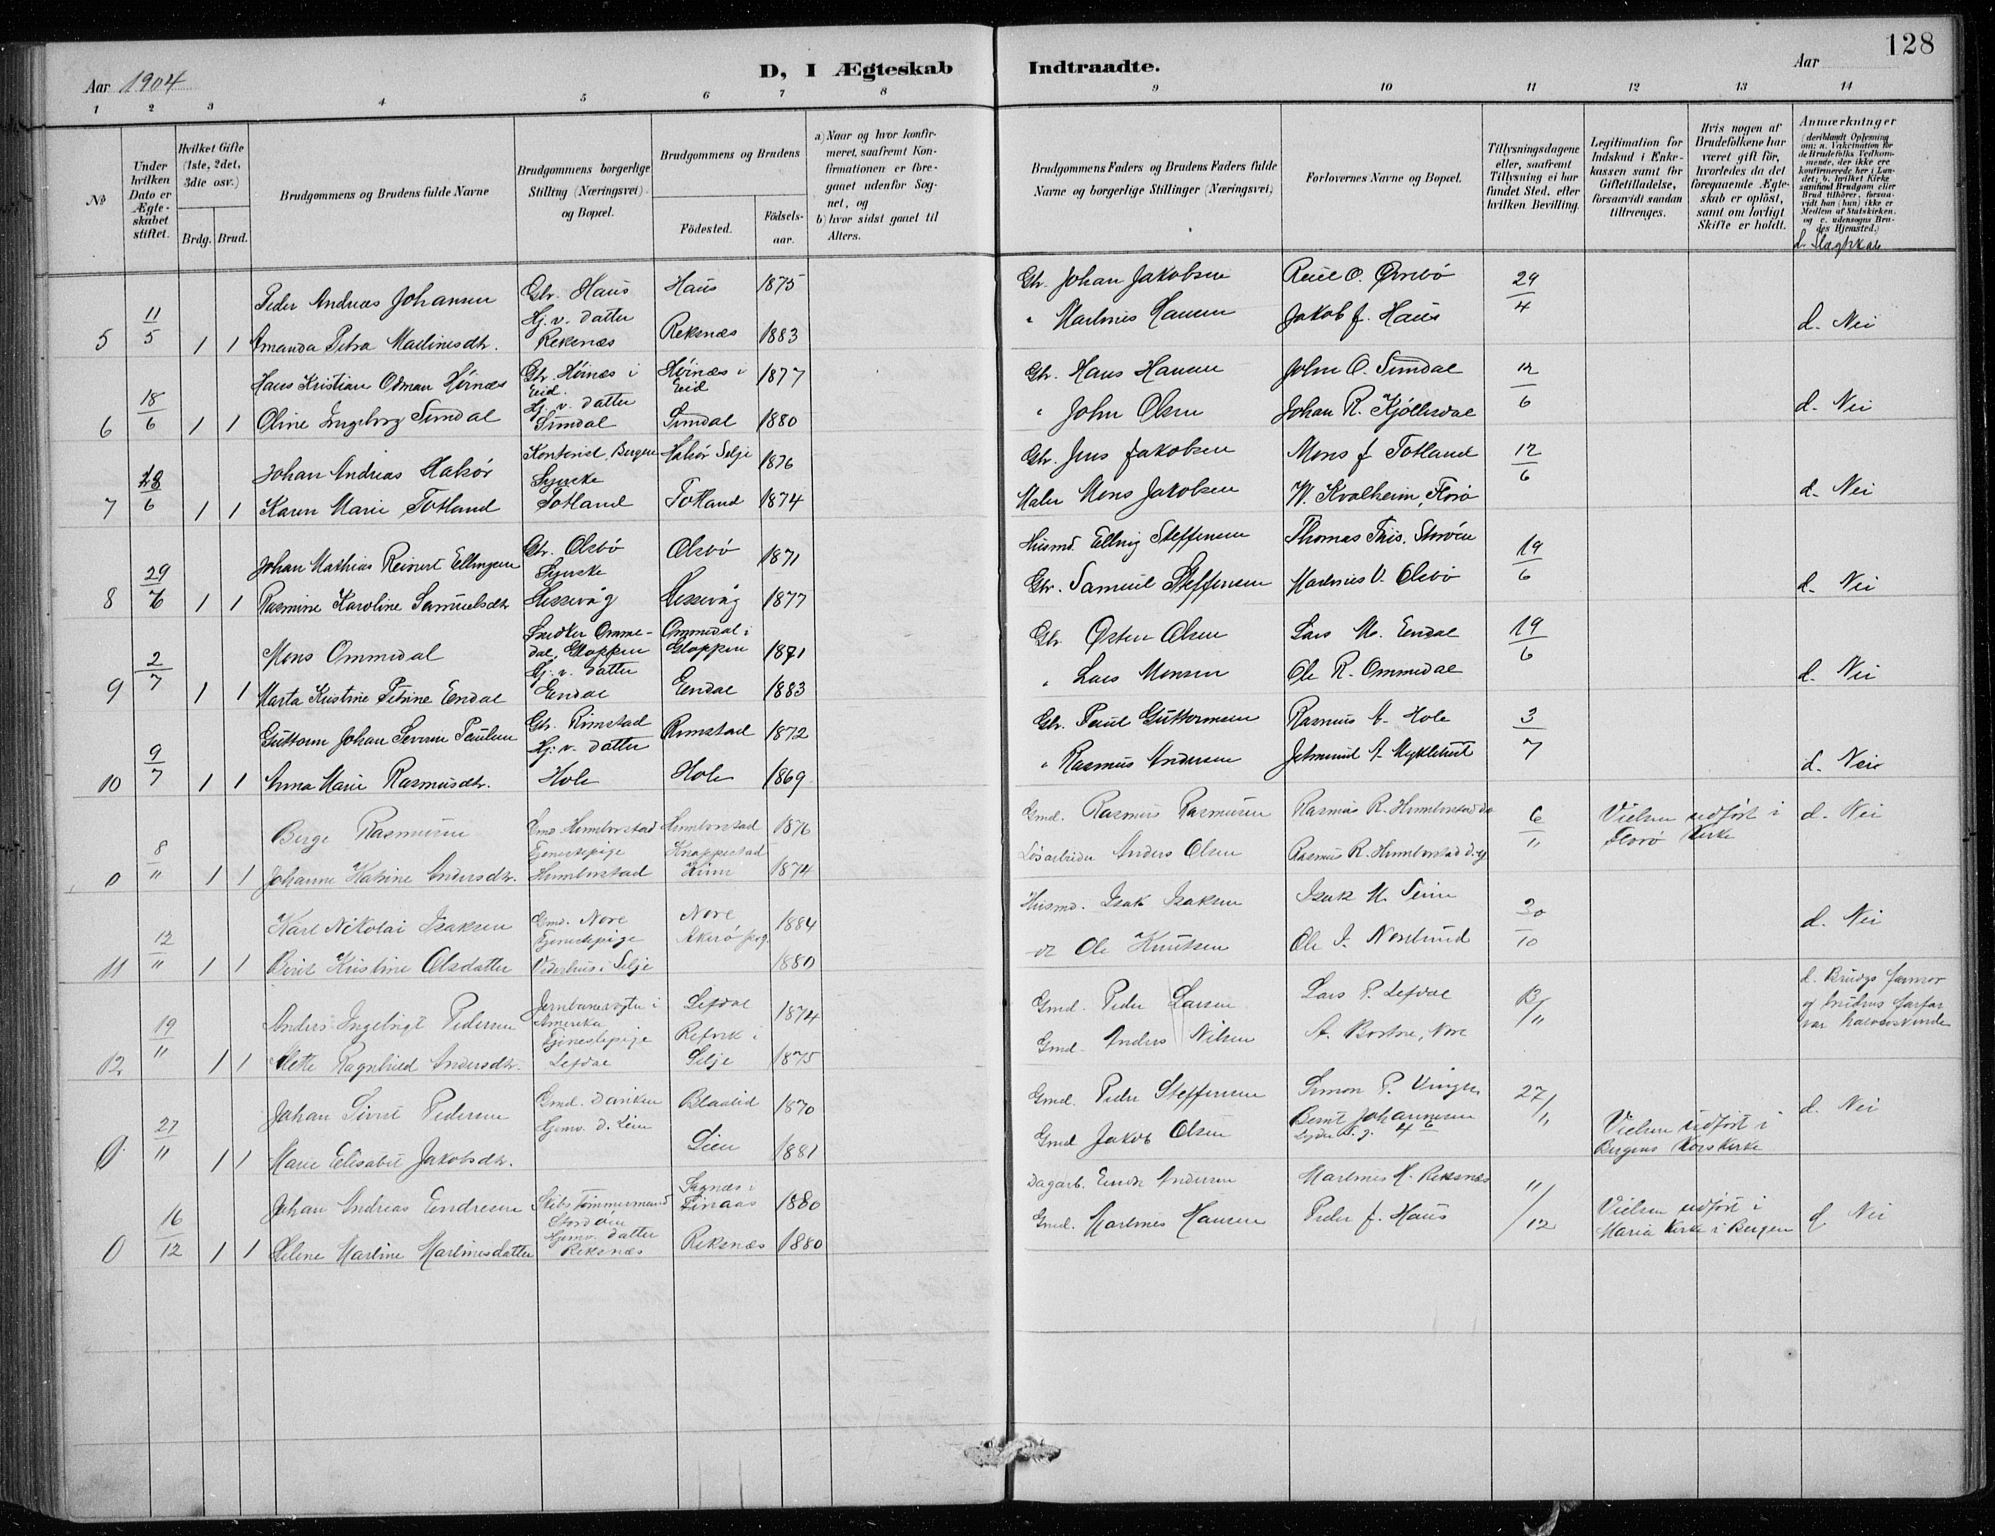 128
Aar 1904
D, I Ægteskab Indtraadte.
Aar
1 2 3 4 5 6 7 8 9 10 11 12 13 14
№
Under hvilken Dato er Ægteskabet stiftet.
Hvilket Gifte (1ste, 2det, 3die osv.)
Brdg. Brud.
Brudgommens og Brudens fulde Navne
Brudgommens borgerlige Stilling (Næringsvei) og Bopæl.
Brudgommens og Brudens
Födested.
Födselsaar.
a) Naar og hvor konfirmeret, saafremt Konfirmationen er foregaaet udenfor Sognet, og
b) hvor sidst gaaet til Alters.
Brudgommens Faders og Brudens Faders fulde Navne og borgerlige Stillinger (Næringsvei)
Forlovernes Navne og Bopæl.
Tillysningsdagene eller, saafremt Tillysning ei har fundet Sted, efter hvilken Bevilling.
Legitimation for Indskud i Enkekassen samt for Giftetilladelse, forsaavidt saadan tiltrænges.
Hvis nogen af Brudefolkene har været gift för, hvorledes da det foregaaende Ægteskab er oplöst, samt om lovligt Skifte er holdt.
Anmærkninger (deriblandt Oplysning om: a. Vakcination for de Brudefolks Vedkommende, der ikke ere konfirmerede her i Landet; b. hvilket Kirkesamfund Brudgom eller Brud tilhörer, forsaavidt han (hun) ikke er Medlem af Statskirken, og c. udensogns Brudes Hjemsted.)
d. Slægtskab
5 11/5 1 1 Peder Andreas Johansen Gbr. Haus Haus 1875 Gbr. Johan Jakobsen 29/4
Amanda Petra Martinesdtr. Gj. v. datter Reksnæs Reksnæs 1883 " Martines Hansen Jakob J. Haus d. Nei
6 18/6 1 1 Hans Kristian Odman Høinæs Gbr. Høinæs i Eid. Høinæs i Eid 1877 Gbr. Hans Hansen John O. Simdal 12/6
Oline Ingeborg Simdal Gj. v. datter Simdal Simdal 1880 " John Olsen Johan R. Kjöllesdal d. Nei
7 28/6 1 1 Johan Andreas Halsør Kontorist, Bergen Halsør Selje 1876 Gbr. Jens Jakobsen Mons J. Totland 12/6
Karen Marie Totland Syerske Totland Totland 1874 Maler Mons Jakobsen W. Kvalheim, Florø d. Nei
8 29/6 1 1 Johan Mathias Reinert Ellingsen Gbr. Olsbö Olsbö 1871 Husmd. Elling Steffensen 19/6
Rasmine Karoline Samuelsdtr Syerske Hessevåg Hessevåg 1877 Gbr. Samuel Steffensen Martines O. Olsbö d. Nei
9 2/7 1 1 Mons Ommedal Snedker Ommedal, Gloppen Ommedal i Gloppen 1871 Gbr Østen Olsen Lars M. Endal 19/6
Marta Kristine Petrine Endal Gj. v. datter Endal Endal 1883 " Lars Monsen Ole R. Ommedal d. Nei
10 9/7 1 1 Guttorm Johan Severin Paulsen Gbr. Rimstad Rimstad 1872 Gbr. Paul Guttormsen Rasmus A. Hole 3/7
Anna Marie Rasmusdtr. Gj. v. datter Hole Hole 1869 " Rasmus Andersen Jetmund A. Myklebust d. Nei
0 8/11 1 1 Berge Rasmusen Gmd. Humborstad Humborstad 1876 Gmd. Rasmus Rasmusen Rasmus R. Humborstad 6/11 Vielsen udført i Florø Kirke d. Nei
Johanne Katrine Andersdtr. Tjenestepige Humborstad Knappestad Kinn 1874 Løsarbeider Anders Olsen Rasmus R. Humborstad d.y.
11 12/11 1 1 Karl Nikolai Isaksen Gmd. Nore Nore 1884 Husmd. Isak Isaksen 30/10 d. Nei
Berit Kristine Olsdatter Tjenestepige i Selje 1880 Ole Knutsen
12 19/11 1 1 Anders Ingebrigt Pedersen i Amerika Lefdal 1874 Gmd. Peder Larsen Lars P. Lefdal 13/11 d. Brudgs farmor og brudens farfar var halvsøskende
Mette Ragnhild Andersdtr. Tjenestepige Lefdal Refvik i Selje 1875 Gmd. Anders Nilsen A. Bortne, Nore
0 27/11 1 1 Johan Sivert Pedersen Gmd. Blaalid 1870 Gmd. Peder Steffensen Simon P. 27/11 d. Nei
Marie Elisabet Jakobsdtr. Hjemv. d. Lien Lien 1881 Gmd Jakob Olsen Bernt Johannesen Vielsen udført i Bergens Korskirke
0 16/12 1 1 Johan Andreas Endresen Skibstømmermand Finaas 1880 Dagarb. Endre Andersen Martines H. Reksnæs 11/12
Selene Martine Martinesdatter Hjemv. datter Reksnæs Reksnæs 1880 Gmd. Martines Hansen Peder J. Haus Vielsen udført i Maria Kirke i Bergen d Nei